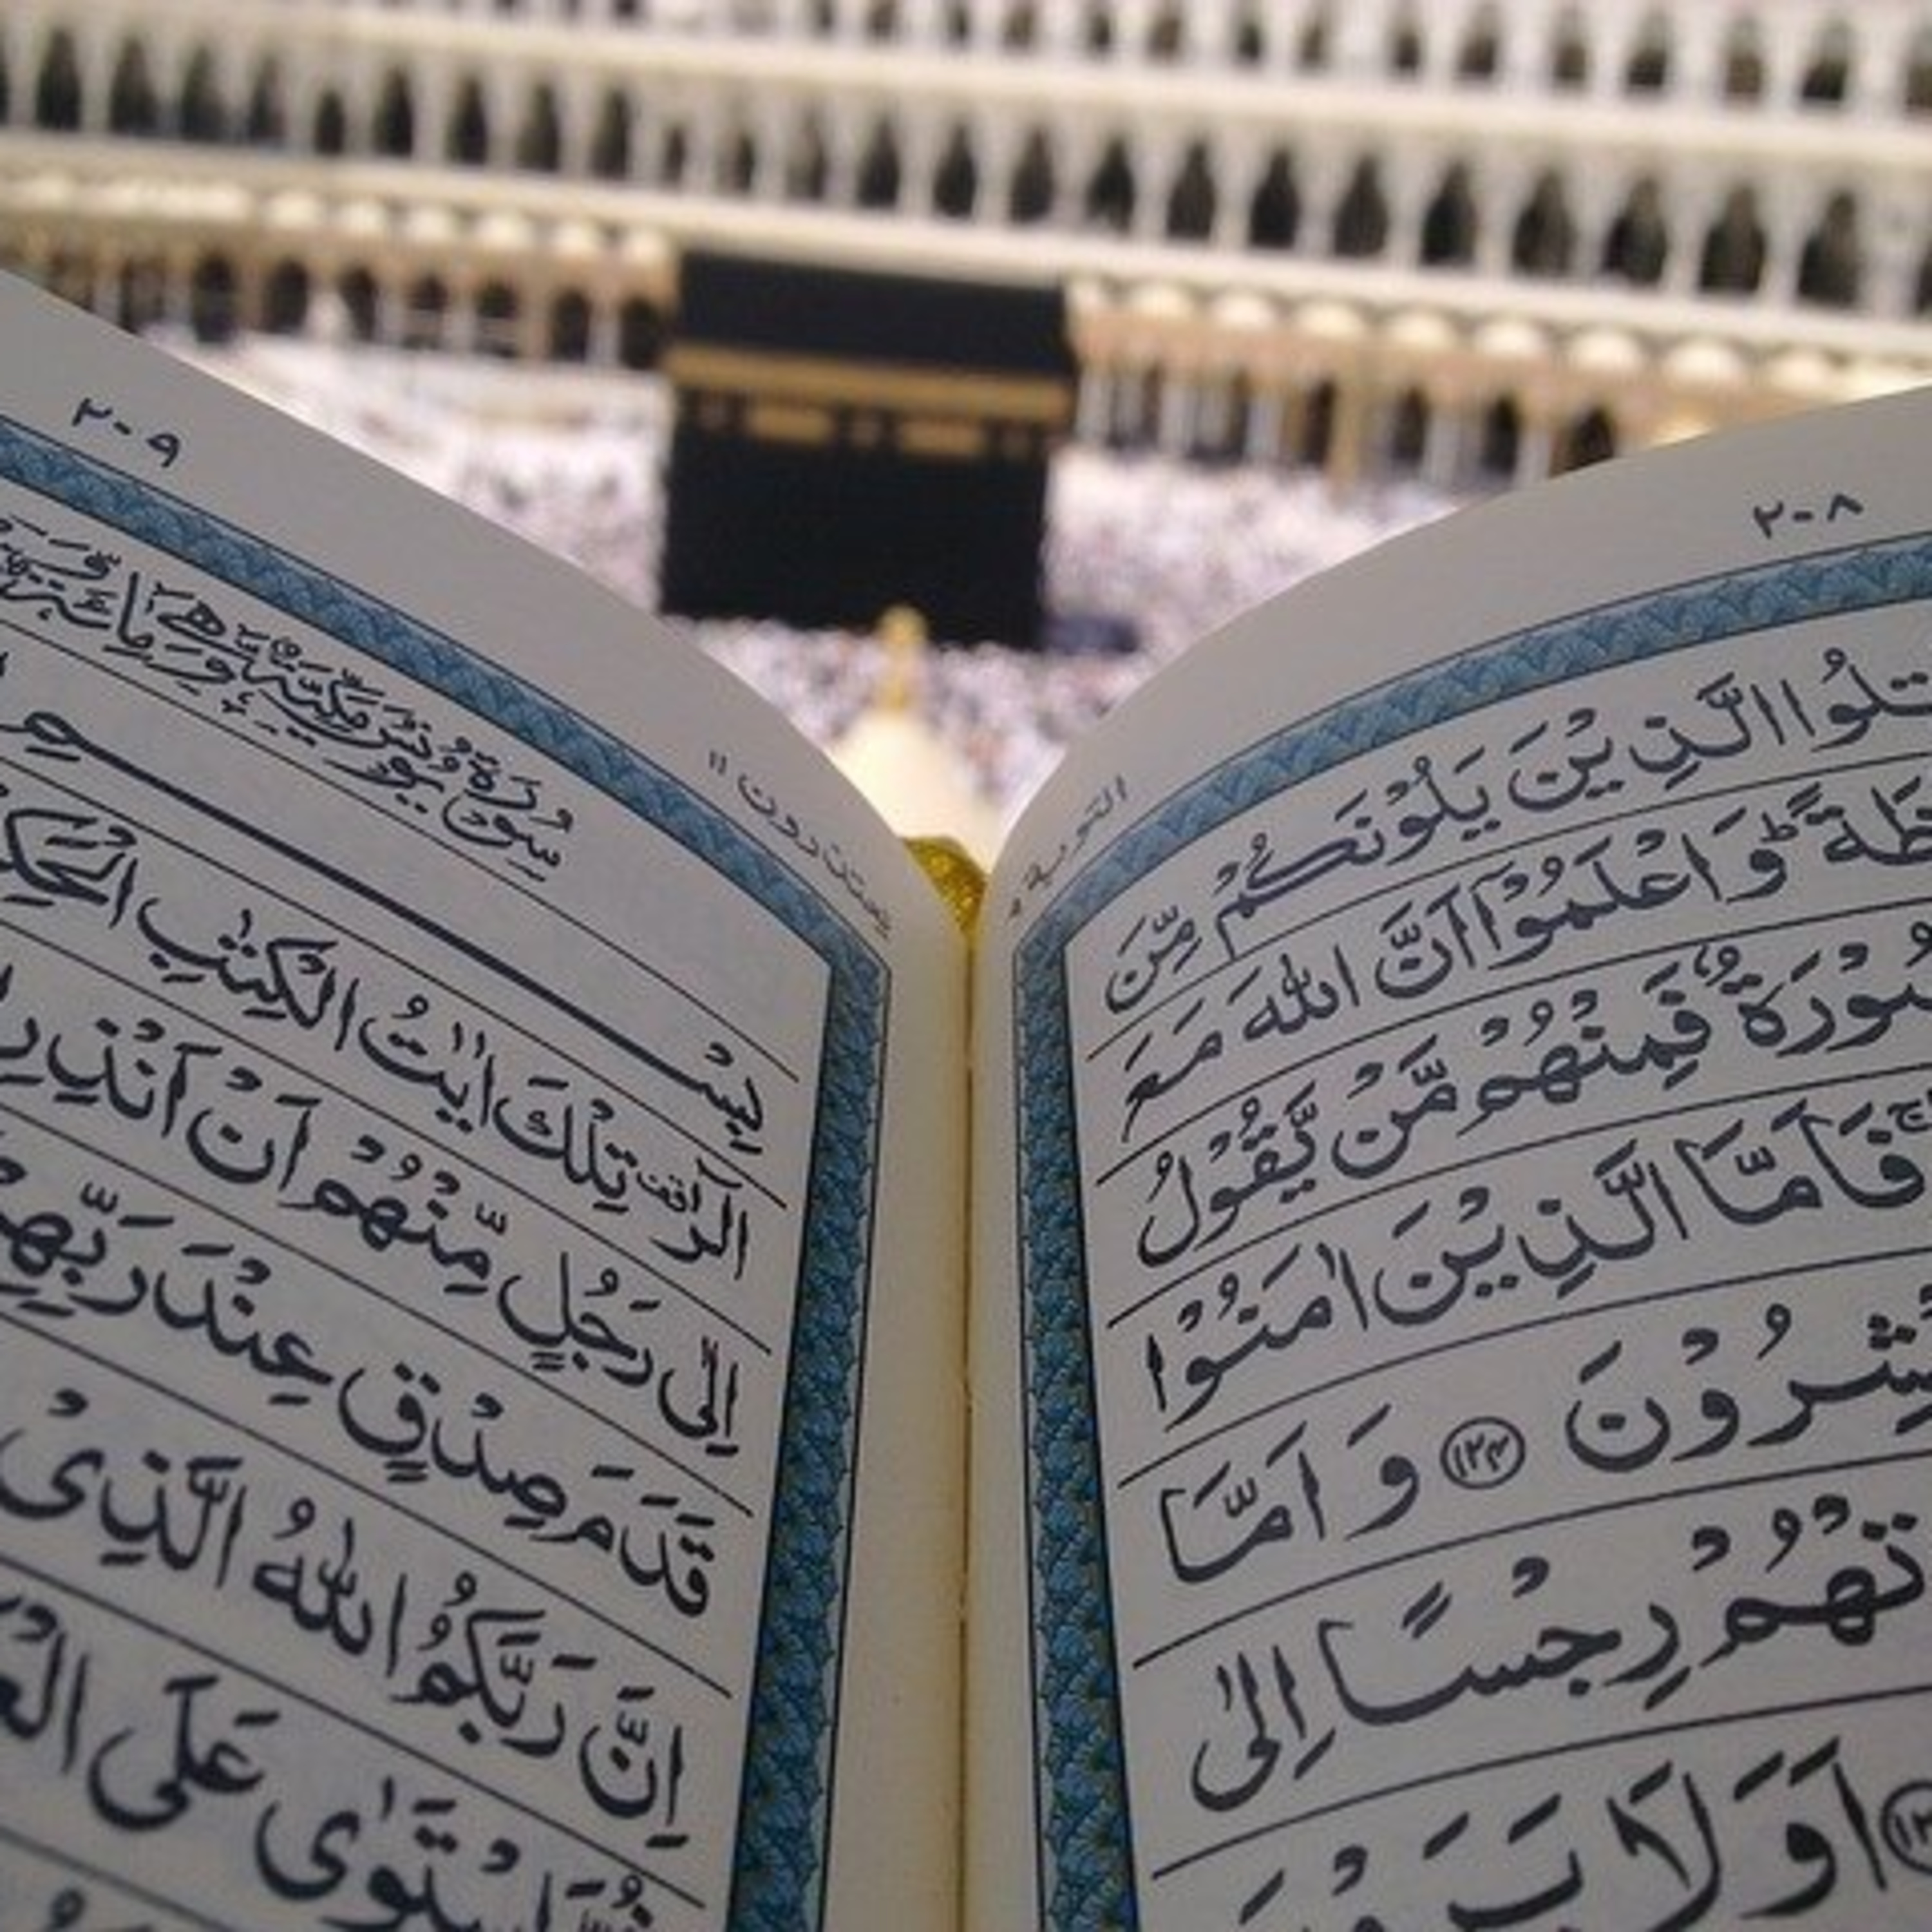 ٢٠٨
التوبة ٩
تلوا الذين يلونكم من
ظة ؕ و اعلموا ان الله مع
سورة فمنهم من يقول
فاما الذين امنوا
بشرون ﴿۱۲۴﴾ و اما
تهم رجسا الى
اولا يرون
٢٠٩
يعتذرون ١١
سورة يونس مكية
بسم
الر تلك ايت الكتب الحكيم
الى رجل منهم ان انذر
قدم صدق عند ربهم
ان ربكم الله الذى
استوى على